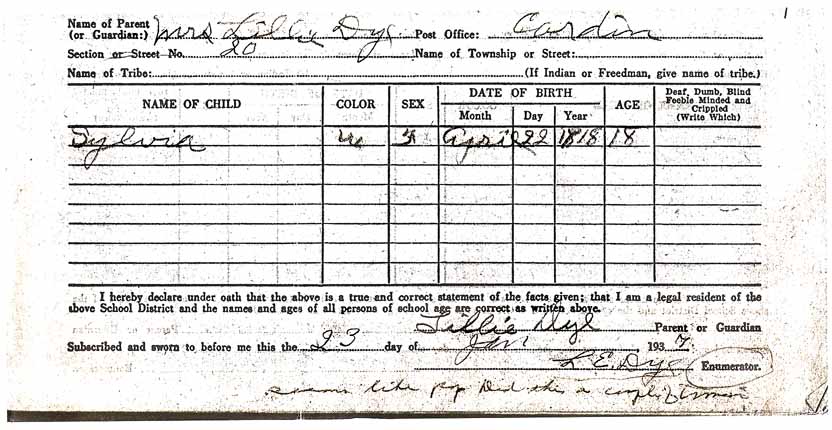 1
Name of Parent (or Guardian:) Mrs Lillie Dye Post Office: Cardin
Section or Street No. 20 Name of Township or Street:
Name of Tribe: (If Indian or Freedman, give name of tribe.)
NAME OF CHILD COLOR SEX DATE OF BIRTH AGE Deaf, Dumb, Blind Feeble Minded and Crippled (Write Which)
Month Day Year
Sylvia w F April 22 1818 18
I hereby declare under oath that the above is a true and correct statement of the facts given; that I am a legal resident of the
above School District and the names and ages of all persons of school age are correct as written above.
Lillie Dye Parent or Guardian
Subscribed and sworn to before me this the 23 day of Jan 1937
L. E. Dye Enumerator.
seems like pop did this a couple of times